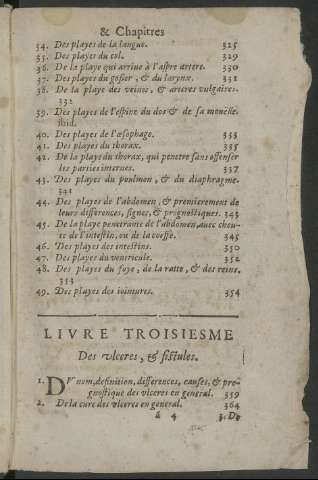 & Chapitres
34. Des playes de la langue. 325
35. Des playes du col. 329
36. De la playe qui arrive à l'aspre artere. 330
37. Des playes du gosier, & du larynx. 331
38. De la playe des veines, & arteres vulgaires.
332
39. Des playes de l'espine du dos & de sa mouëlle.
ibid.
40. Des playes de l'œsophage. 333
41. Des playes du thorax. 335
42. De la playe du thorax, qui penetre sans offenser
les parties internes. 337
43. Des playes du poulmon, & du diaphragme.
341
44. Des playes de l'abdomen, & premierement de
leurs differences, signes, & prognostiques. 343
45. De la playe penetrante de l'abdomen, avec cheu-
te de l'intestin, ou de la coeffe. 345
46. Des playes des intestins. 350
47. Des playes du ventricule. 352
48. Des playes du foye, de la ratte, & des reins.
353
49. Des playes des iointures. 354
LIVRE TROISIESME
Des vlceres, & fistules.
1. DV nom, definition, differences, causes, & pro-
gnostique des vlceres en general. 359
2. De la cure des vlceres en general. 364
á 4 3. De